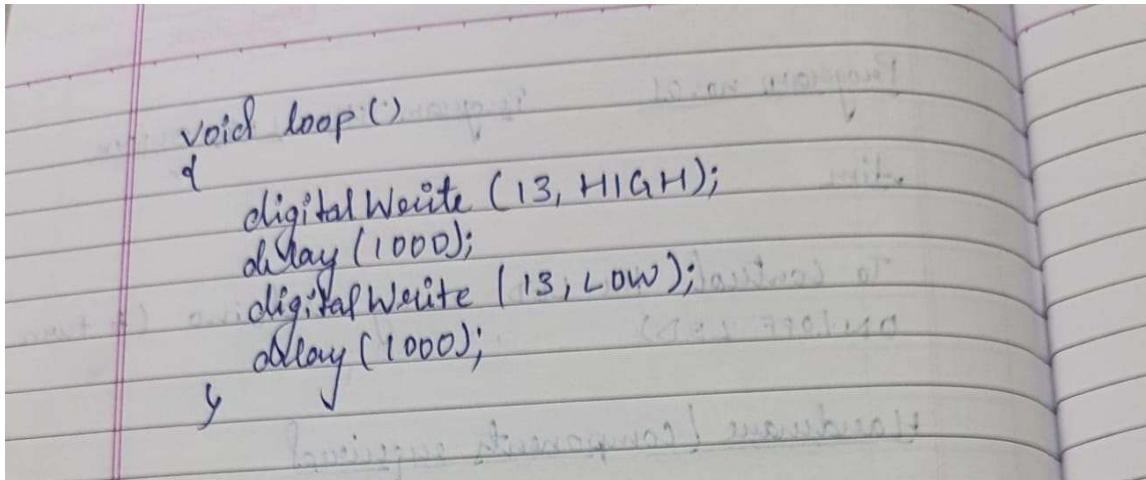 void loop()
{
digitalWrite (13, HIGH);
delay (1000);
digitalWrite (13, LOW);
delay (1000);
}